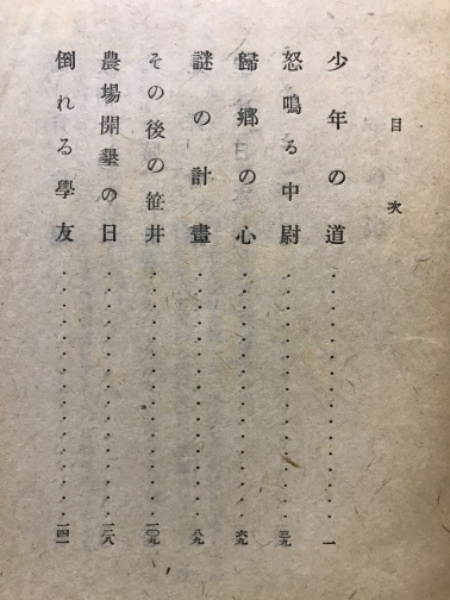 目次
少年の道・・・・・・・・・・・・・・・一
怒鳴る中尉・・・・・・・・・・・・・・・三九
歸郷の心・・・・・・・・・・・・・・・六九
謎の計畫・・・・・・・・・・・・・・・八九
その後の笹井・・・・・・・・・・・・・・・一〇九
農場開墾の日・・・・・・・・・・・・・・・一二八
倒れる學友・・・・・・・・・・・・・・・一四一